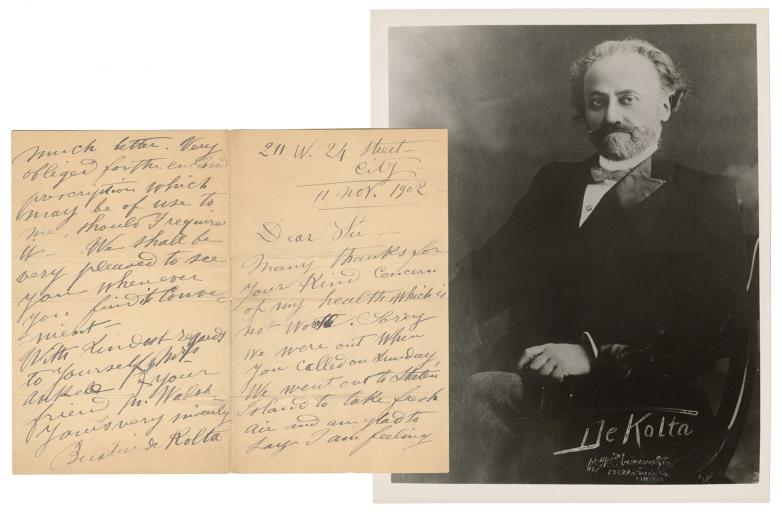 211 W. 24 Street
City
11 Nov. 1902
Dear Sir
Many thanks for
your Kind Concern
of my health which is
not Worth. Sorry
We were out When
you Called on Sunday,
We went out to Staten
Island to take fresh
air and am glad to
say I am feeling
much better. Very
obliged for the enclosed
prescription which
may be of use to
me, should I require
it. We shall be
very pleased to see
you whenever
you find it conve-
nient
With Kindest regards
to yourself Mrs
& your
friend M. Walsh
Yours very sincerely
Buatier de Kolta
De Kolta